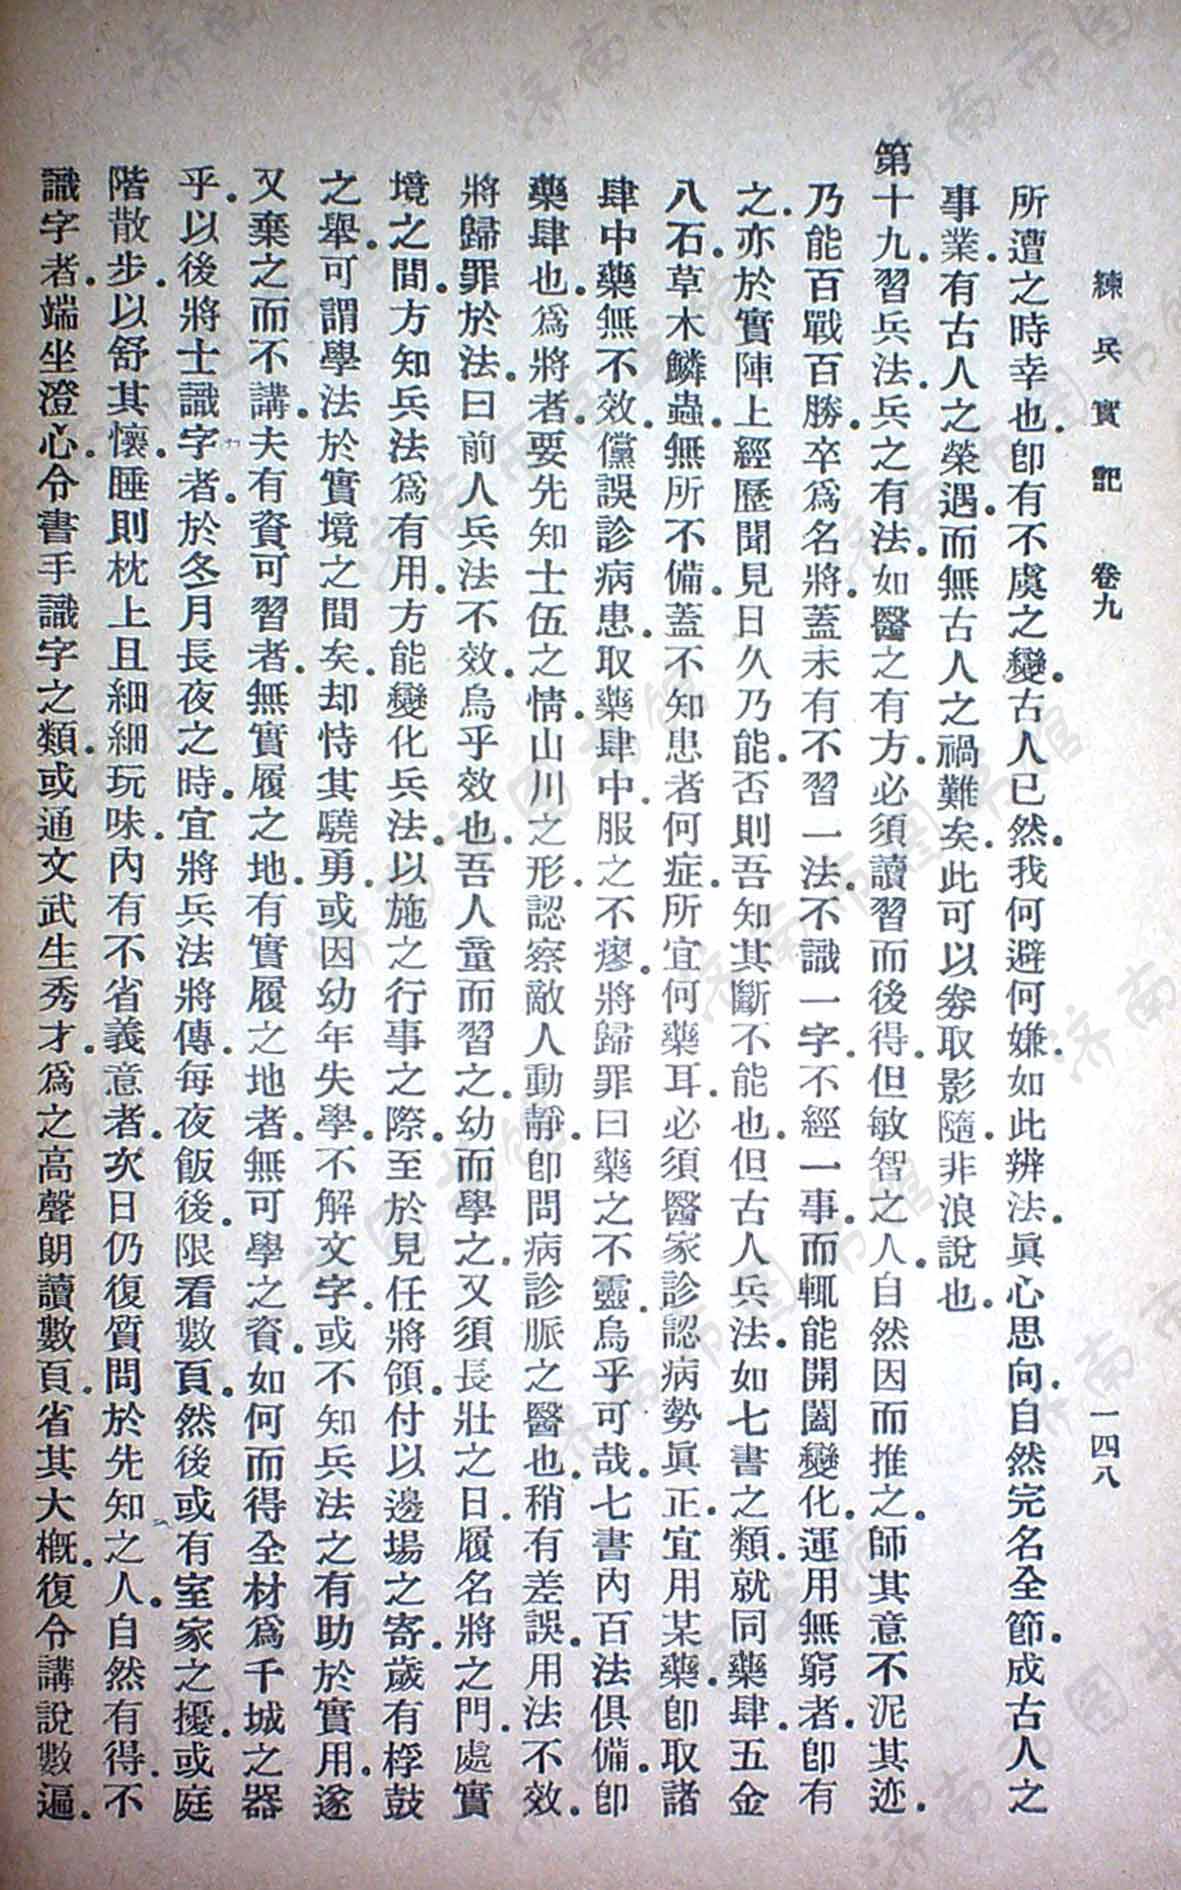 練兵實記 卷九 一四八
所遭之時幸也．卽有不虞之變．古人已然．我何避何嫌．如此辨法．眞心思向．自然完名全節．成古人之
事業．有古人之榮遇．而無古人之禍難矣．此可以券取影隨．非浪說也．
第十九習兵法．兵之有法．如醫之有方．必須讀習而後得．但敏智之人．自然因而推之．師其意不泥其迹．
乃能百戰百勝．卒爲名將．蓋未有不習一法．不識一字．不經一事．而輒能開闔變化．運用無窮者．卽有
之．亦於實陣上經歷聞見日久乃能．否則吾知其斷不能也．但古人兵法．如七書之類．就同藥肆．五金
八石．草木鱗蟲．無所不備．蓋不知患者何症．所宜何藥耳．必須醫家診認病勢眞正．宜用某藥．卽取諸
肆中藥無不效．儻誤診病患．取藥肆中．服之不瘳．將歸罪曰藥之不靈．烏乎可哉．七書內百法俱備．卽
藥肆也．爲將者．要先知士伍之情．山川之形．認察敵人動靜．卽問病診脈之醫也．稍有差誤．用法不效．
將歸罪於法．曰前人兵法不效．烏乎效也．吾人童而習之．幼而學之．又須長壯之日．履名將之門．處實
境之間．方知兵法爲有用．方能變化兵法．以施之行事之際．至於見任將領．付以邊場之寄．歲有桴鼓
之舉．可謂學法於實境之間矣．却恃其驍勇．或因幼年失學．不解文字．或不知兵法之有助於實用．遂
又棄之而不講．夫有資可習者．無實履之地．有實履之地者．無可學之資．如何而得全材爲千城之器
乎．以後將士識字者．於冬月長夜之時．宜將兵法將傳．每夜飯後．限看數頁．然後或有室家之擾．或庭
階散步．以舒其懷．睡則枕上且細細玩味．內有不省義意者．次日仍復質問於先知之人．自然有得．不
識字者．端坐澄心．令書手識字之類．或通文武生秀才．爲之高聲朗讀數頁．省其大槪．復令講說數遍．